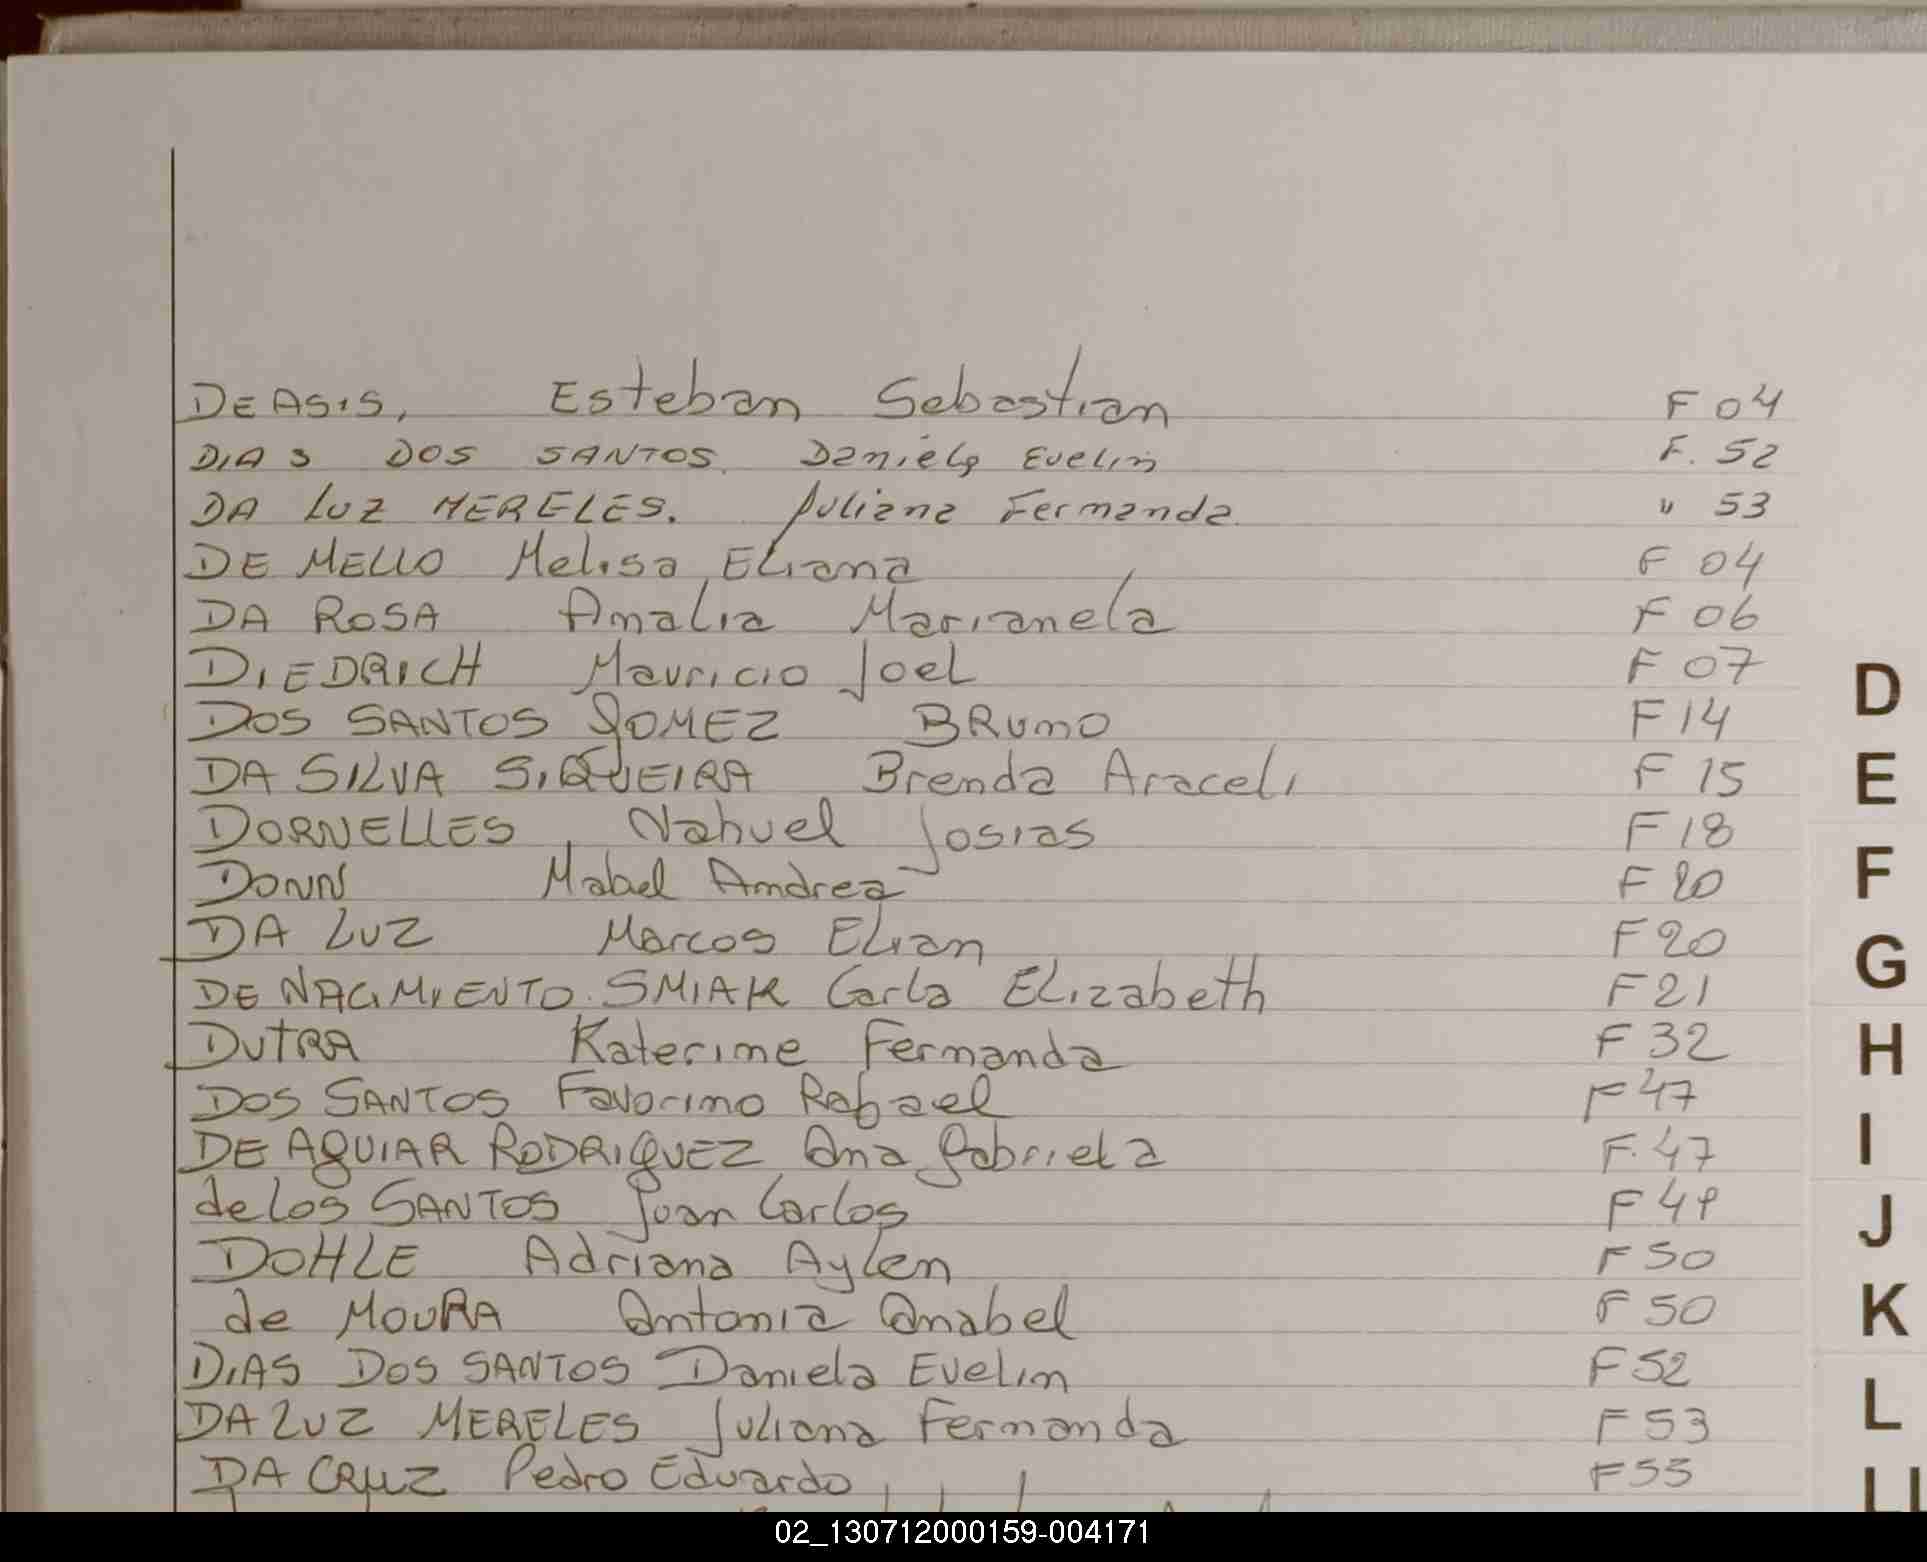 DE ASIS, Esteban Sebastian F 04
DIAS DOS SANTOS. Daniela Evelin F. 52
DA LUZ MERELES. Juliana Fernanda. " 53
DE MELLO Melisa, Eliana F 04
DA ROSA Amalia Marianela F 06
DIEDRICH Mauricio Joel F 07
DOS SANTOS GOMEZ BRUNO F 14
DA SILVA SIQUEIRA Brenda Araceli F 15
DORNELLES, Nahuel Josias F 18
DONN Mabel Andrea F 20
DA LUZ Marcos Elian F 20
DE NACIMIENTO. SMIAK Carla Elizabeth F 21
DUTRA Katerine Fernanda F 32
DOS SANTOS Favorino Rafael F 47
DE AGUIAR RODRIGUEZ, Ana Gabriela F. 47
de los SANTOS Juan Carlos F 49
DOHLE Adriana Aylen F 50
de MOURA Antonia Anabel F 50
DIAS DOS SANTOS Daniela Evelin F 52
DA LUZ MERELES Juliana Fernanda F 53
DA CRUZ Pedro Eduardo F 55
D
E
F
G
H
I
J
K
L
LL
02_130712000159-004171